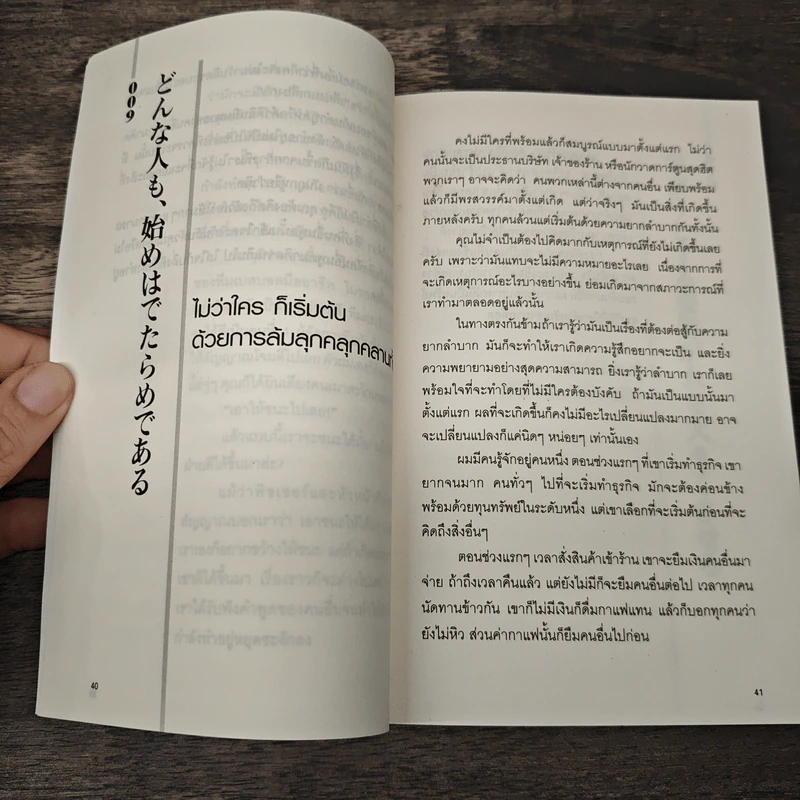 009
どんな人も、始めはでたらめである
ไม่ว่าใคร ก็เริ่มต้น
ด้วยการล้มลุกคลุกคลาน
40
คงไม่มีใครที่พร้อมแล้วก็สมบูรณ์แบบมาตั้งแต่แรก ไม่ว่า
คนนั้นจะเป็นประธานบริษัท เจ้าของร้าน หรือนักวาดการ์ตูนสุดฮิต
พวกเราๆ อาจจะคิดว่า คนพวกเหล่านี้ต่างจากคนอื่น เพียบพร้อม
แล้วก็มีพรสวรรค์มาตั้งแต่เกิด แต่ว่าจริงๆ มันเป็นสิ่งที่เกิดขึ้น
ภายหลังครับ ทุกคนล้วนแต่เริ่มต้นด้วยความยากลำบากกันทั้งนั้น
คุณไม่จำเป็นต้องไปคิดมากกับเหตุการณ์ที่ยังไม่เกิดขึ้นเลย
ครับ เพราะว่ามันแทบจะไม่มีความหมายอะไรเลย เนื่องจากการที่
จะเกิดเหตุการณ์อะไรบางอย่างขึ้น ย่อมเกิดมาจากสภาวะการณ์ที่
เราทำมาตลอดอยู่แล้วนั้น
ในทางตรงกันข้ามถ้าเรารู้ว่ามันเป็นเรื่องที่ต้องต่อสู้กับความ
ยากลำบาก มันก็จะทำให้เราเกิดความรู้สึกอยากจะเป็น และยิ่ง
ความพยายามอย่างสุดความสามารถ ยิ่งเรารู้ว่าลำบาก เราก็เลย
พร้อมใจที่จะทำโดยที่ไม่มีใครต้องบังคับ ถ้ามันเป็นแบบนั้นมา
ตั้งแต่แรก ผลที่จะเกิดขึ้นก็คงไม่มีอะไรเปลี่ยนแปลงมากมาย อาจ
จะเปลี่ยนแปลงก็แค่นิดๆ หน่อยๆ เท่านั้นเอง
ผมมีคนรู้จักอยู่คนหนึ่ง ตอนช่วงแรกๆ ที่เขาเริ่มทำธุรกิจ เขา
ยากจนมาก คนทั่วๆ ไปที่จะเริ่มทำธุรกิจ มักจะต้องค่อนข้าง
พร้อมด้วยทุนทรัพย์ในระดับหนึ่ง แต่เขาเลือกที่จะเริ่มต้นก่อนที่จะ
คิดถึงสิ่งอื่นๆ
ตอนช่วงแรกๆ เวลาสั่งสินค้าเข้าร้าน เขาจะยืมเงินคนอื่นมา
จ่าย ถ้าถึงเวลาคืนแล้ว แต่ยังไม่มีก็จะยืมคนอื่นต่อไป เวลาทุกคน
นัดทานข้าวกัน เขาก็ไม่มีเงินก็ดื่มกาแฟแทน แล้วก็บอกทุกคนว่า
ยังไม่หิว ส่วนค่ากาแฟนั้นก็ยืมคนอื่นไปก่อน
41